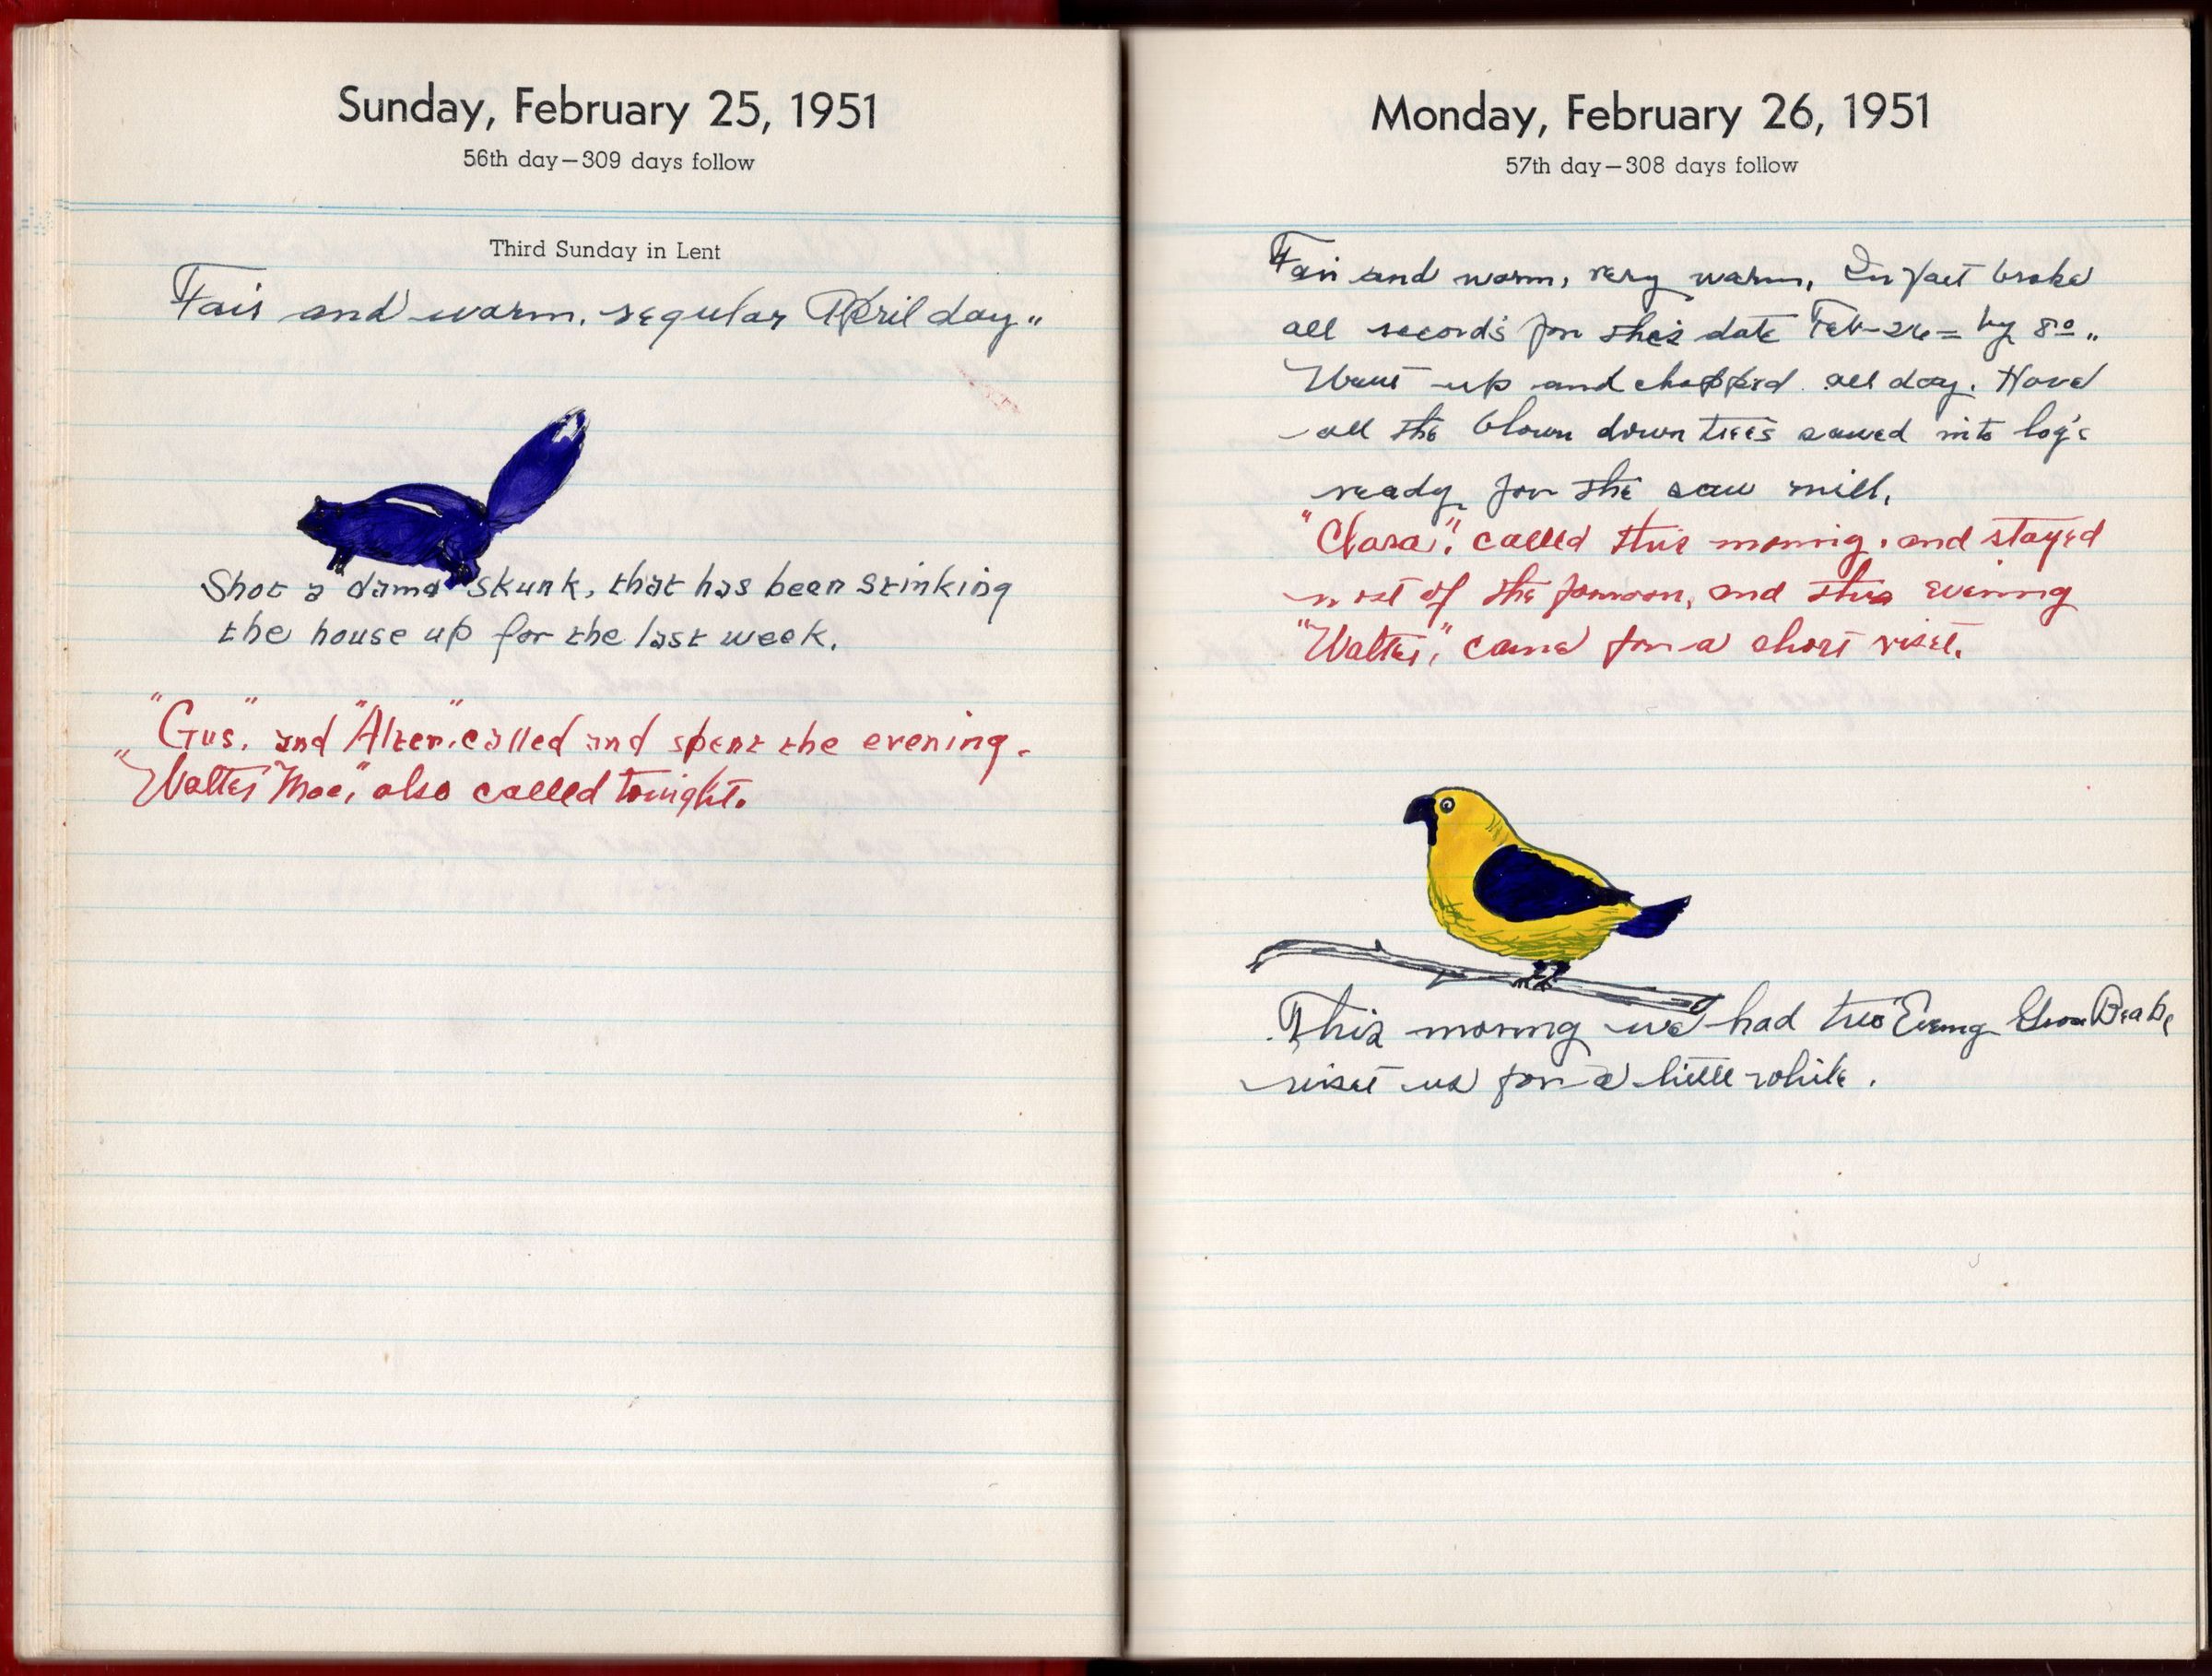 Sunday, February 25, 1951
56th day—309 days follow
Third Sunday in Lent
Fair and warm, regular April day"
Shot a damd skunk, that has been stinking
the house up for the last week.
"Gus," and "Alten" called and spent the evening.
"Walter Moe," also called tonight.
Monday, February 26, 1951
57th day—308 days follow
Fair and warm, very warm, In fact broke
all records for this date Feb-26= by 8º"
Went up and chopped all day. Haved
all the blown down trees sawed into log's
ready for the saw mill.
"Clara", called this morning, and stayed
most of the fornoon, and this evening
"Walter," came for a short viset.
This morning we had two Evening Grose Beaks
viset us for a little while.